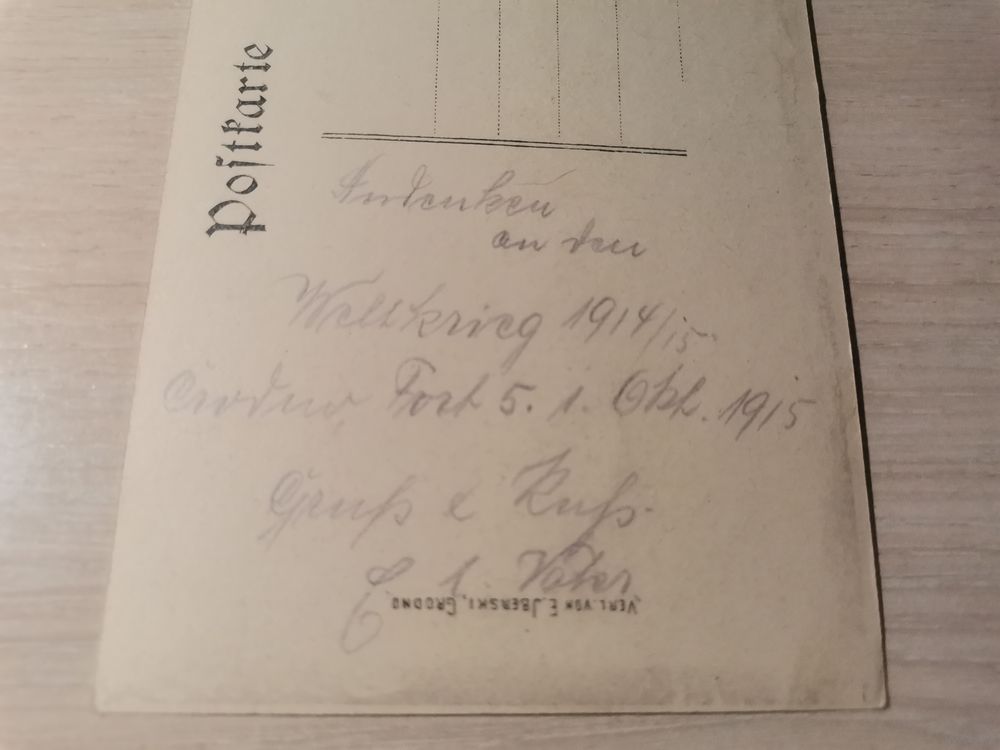 Postkarte
Andenken
an den
Weltkrieg 1914/15
Grodno, Fort 5. 1. Okt. 1915
Gruß & Kuß.
E. l. Vater
VERL. VON E. JBERSKI, GRODNO